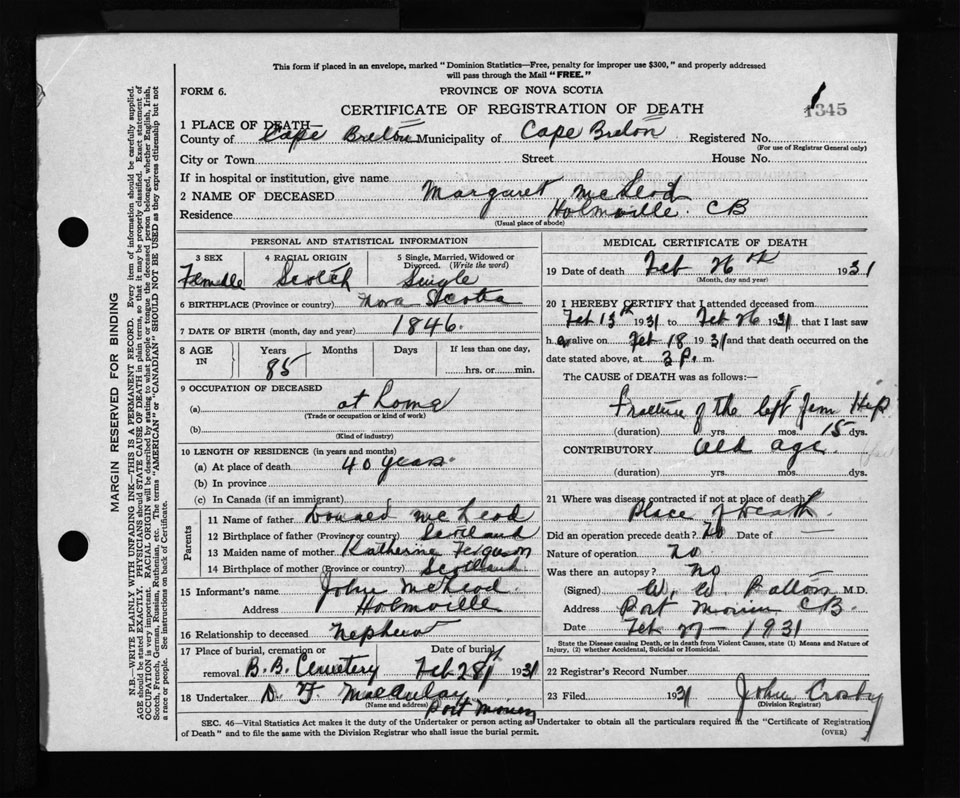 This form if placed in an envelope, marked "Dominion Statistics—Free, penalty for improper use $300," and properly addressed
will pass through the Mail "FREE."
FORM 6. PROVINCE OF NOVA SCOTIA
1345
CERTIFICATE OF REGISTRATION OF DEATH
1 PLACE OF DEATH—
County of Cape Breton Municipality of Cape Breton Registered No.
(For use of Registrar General only)
City or Town Street House No.
If in hospital or institution, give name
2 NAME OF DECEASED Margaret McLeod
Residence Holmville CB
(Usual place of abode)
PERSONAL AND STATISTICAL INFORMATION
3 SEX 4 RACIAL ORIGIN 5 Single, Married, Widowed or
Divorced. (Write the word)
Female Scotch Single
6 BIRTHPLACE (Province or country) Nova Scotia
7 DATE OF BIRTH (month, day and year) 1846.
8 AGE IN Years Months Days If less than one day,
85 hrs. or min.
9 OCCUPATION OF DECEASED
(a) at home
(Trade or occupation or kind of work)
(b)
(Kind of industry)
10 LENGTH OF RESIDENCE (in years and months)
(a) At place of death 40 years
(b) In province
(c) In Canada (if an immigrant)
Parents
11 Name of father Donald McLeod
12 Birthplace of father (Province or country) Scotland
13 Maiden name of mother Katherine Ferguson
14 Birthplace of mother (Province or country) Scotland
15 Informant's name John McLeod
Address Holmville
16 Relationship to deceased Nephew
17 Place of burial, cremation or Date of burial
removal B.B. Cemetery Feb 28th 1931
18 Undertaker D. F. MacAulay
(Name and address) Port Morien
MEDICAL CERTIFICATE OF DEATH
19 Date of death Feb 26th 1931
(Month, day and year)
20 I HEREBY CERTIFY that I attended deceased from
Feb 13th 1931 to Feb 26 1931 that I last saw
her alive on Feb 18 1931 and that death occurred on the
date stated above, at 3 P. m.
The CAUSE OF DEATH was as follows:—
Fracture of the left Hip
(duration) yrs. mos. 15 dys.
CONTRIBUTORY Old age
(duration) yrs. mos. dys.
21 Where was disease contracted if not at place of death?
Place of Death
Did an operation precede death? No Date of —
Nature of operation no
Was there an autopsy? no
(Signed) W. W. M.D.
Address Port Morien CB.
Date Feb 27 — 1931
State the Disease causing Death, or in death from Violent Causes, state (1) Means and Nature of
Injury, (2) whether Accidental, Suicidal or Homicidal.
22 Registrar's Record Number
23 Filed 1931 John Crosby
(Division Registrar)
SEC. 46—Vital Statistics Act makes it the duty of the Undertaker or person acting as Undertaker to obtain all the particulars required in the "Certificate of Registration
of Death" and to file the same with the Division Registrar who shall issue the burial permit. (OVER)
MARGIN RESERVED FOR BINDING
N.B.—WRITE PLAINLY WITH UNFADING INK—THIS IS A PERMANENT RECORD. Every item of information should be carefully supplied.
AGE should be stated EXACTLY. PHYSICIANS should STATE CAUSE OF DEATH in plain terms, so that it may be properly classified. Exact statement of
OCCUPATION is very important. RACIAL ORIGIN will be described by stating to what people or tongue the deceased person belonged, whether English, Irish,
Scotch, French, German, Russian, Ruthenian, etc. The terms "AMERICAN" or "CANADIAN" SHOULD NOT BE USED as they express citizenship but not
a race or people. See instructions on back of Certificate.